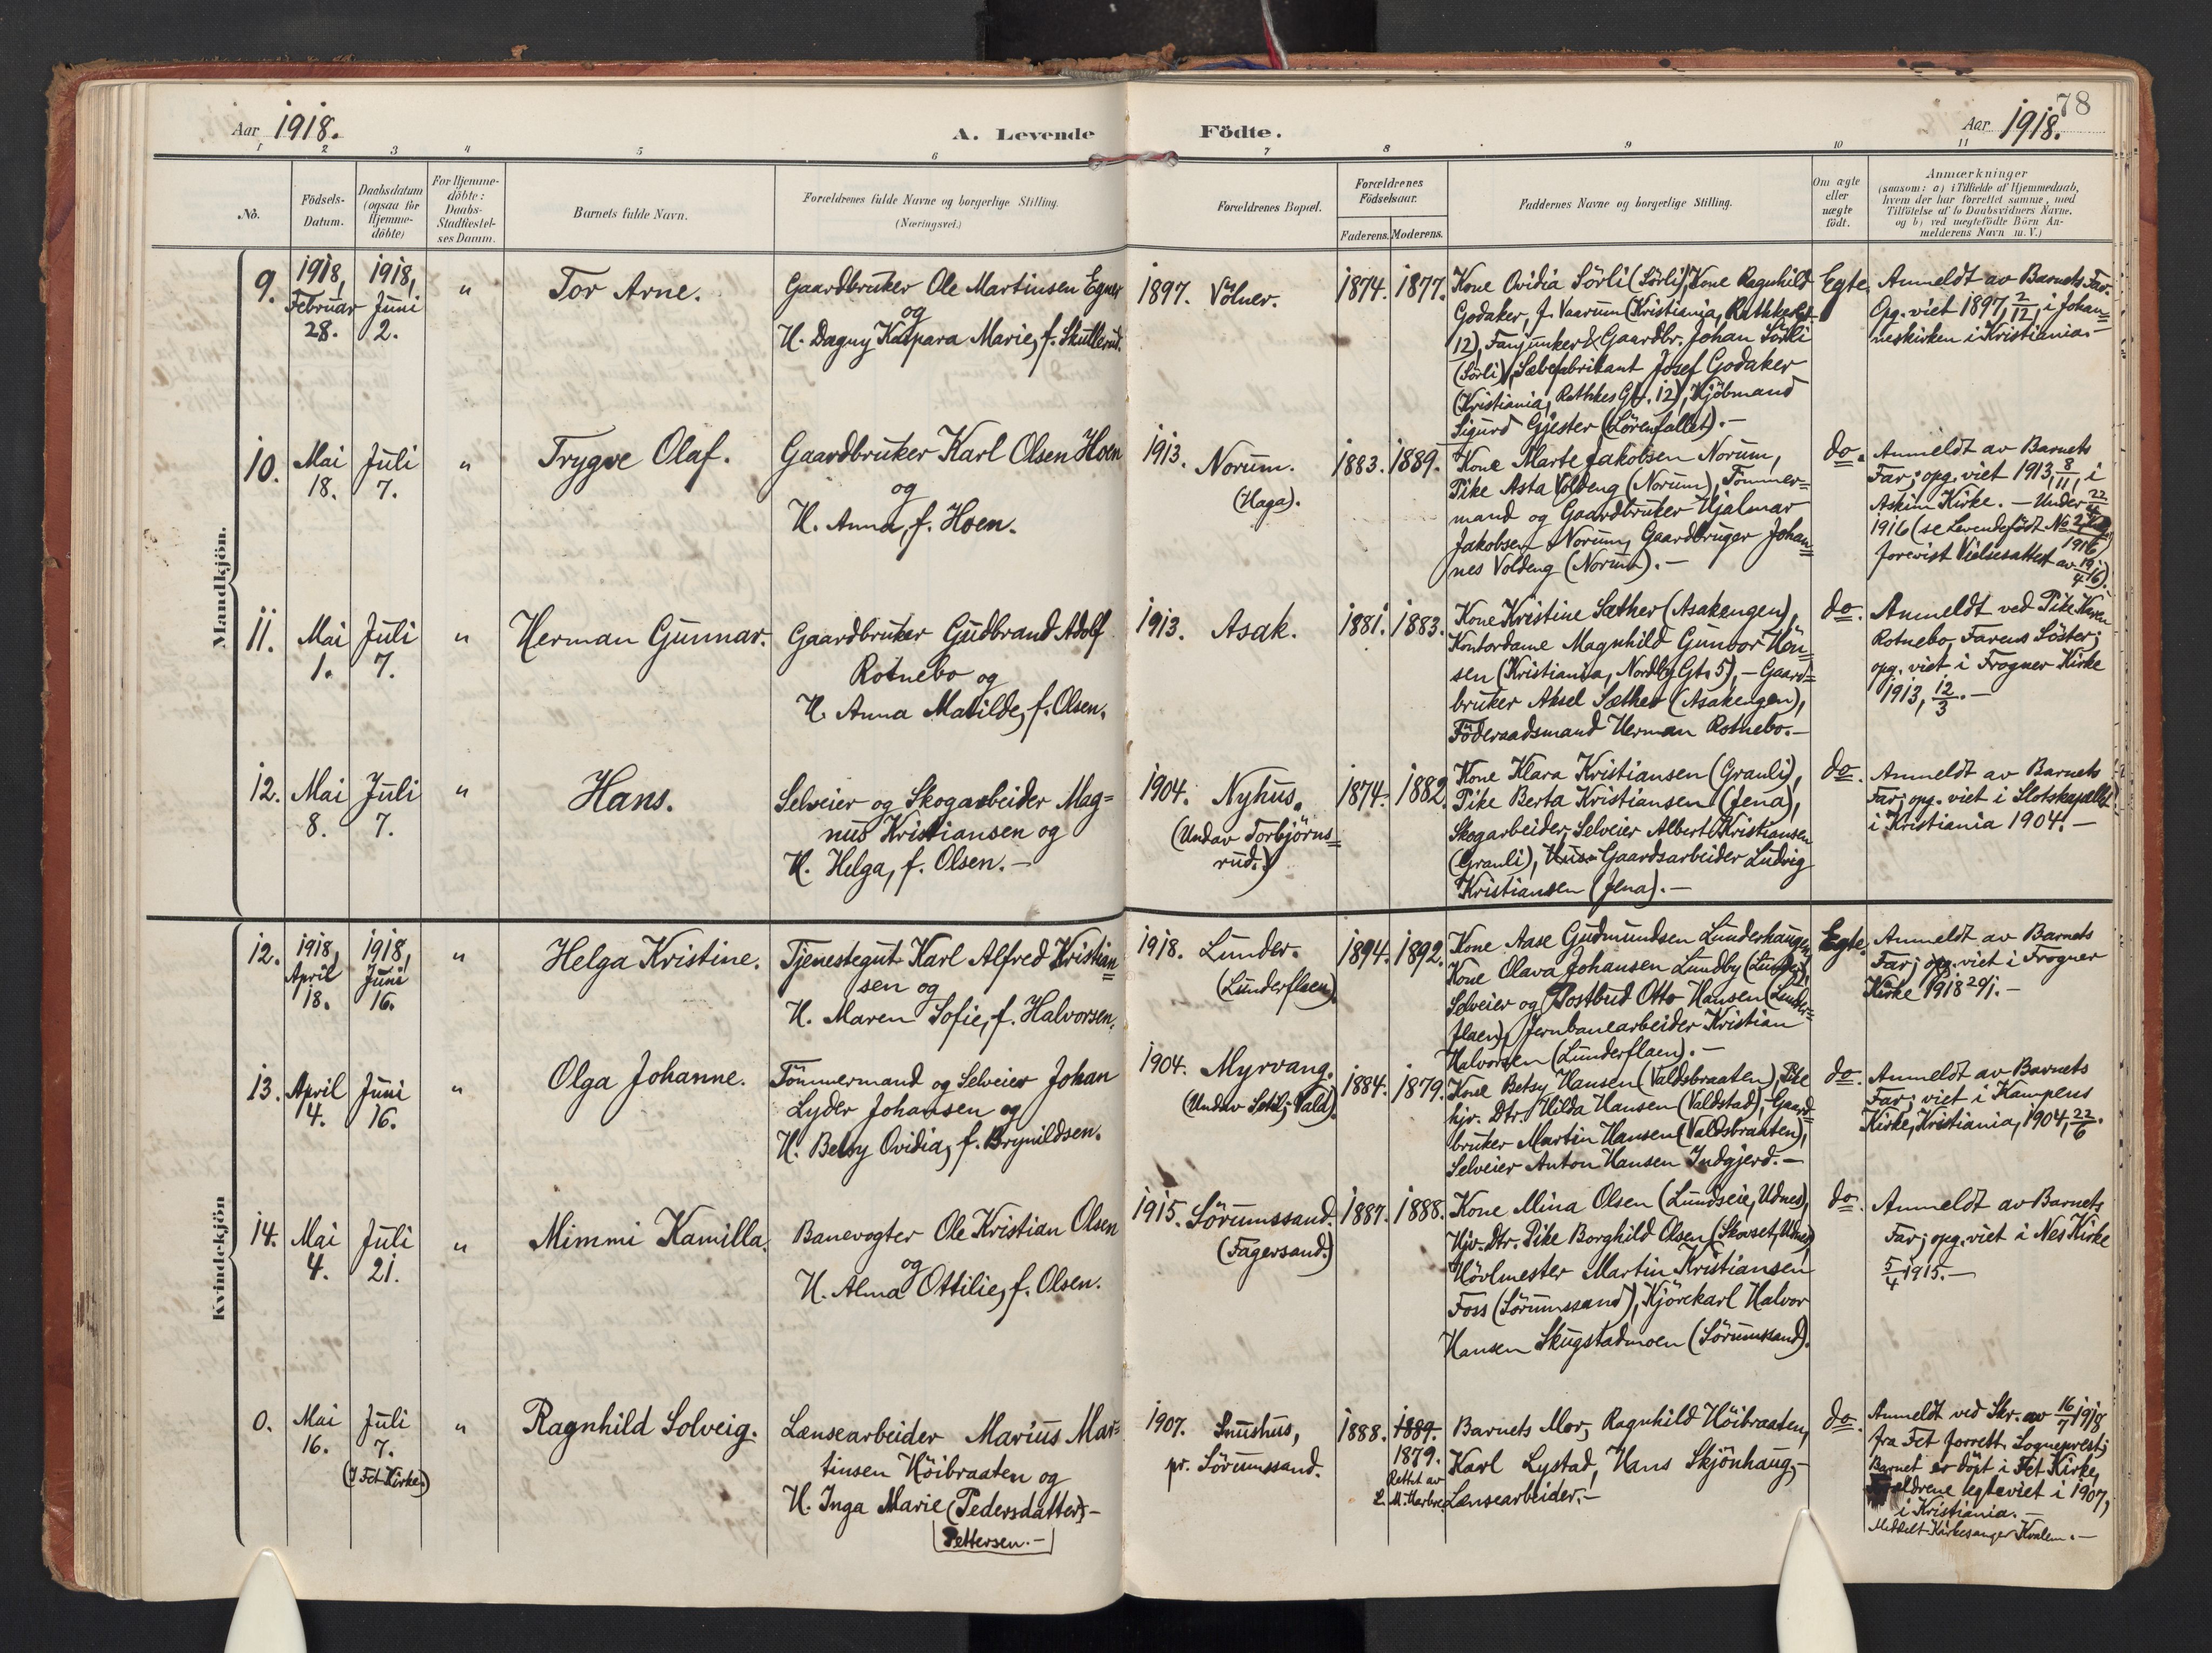 78
Aar 1918.
A. Levende
Födte.
Aar 1918.
1 2 3 4 5 6 7 8 9 10 11
No.
Födsels-
Datum.
Daabsdatum
(ogsaa for
Hjemme-
döbte)
For Hjemme-
döbte:
Daabs-
Stadfæstel-
ses Datum.
Barnets fulde Navn.
Forældrenes fulde Navne og borgerlige Stilling.
(Næringsvei.)
Forældrenes Bopæl.
Forældrenes
Födselsaar.
Faderens. Moderens.
Faddernes Navne og borgerlige Stilling.
Om ægte
eller
uægte
födt.
Anmærkninger
(saasom: a) i Tilfælde af Hjemmedaab,
hvem der har forrettet samme, med
Tilföielse af to Daabsvidners Navne.
og b) ved uægtefödte Börn An-
melderens Navn m. V.)
Mandkjön.
9.
1918,
Februar
28.
1918,
Juni
2.
"
Tor Arne.
Gaardbruker Ole Martinsen Egner
og
H. Dagny Kaspara Marie, f. Skutlerud.
1897. Völner.
1874. 1877.
Kone Ovidia Sörli (Sörli), Kone Ragnhild
Godaker, f. Vaarum (Kristiania, Rathkesgt
12), Fanjunker & Gaardbr. Johan Sörli
(Sörli), Sæbefabrikant Josef Godaker
(Kristiania, Rathkes Gt. 12), Kjöbmand
Sigurd Gjester (Lörenfallet). —
Egte.
Anmeldt av Barnets Far.
Opg. viet 1897, 2/12, i Johan=
neskirken i Kristiania. —
10.
Mai
18.
Juli
7.
"
Trygve Olaf.
Gaardbruker Karl Olsen Hoen
og
H. Anna, f. Hoen.
1913. Norum.
(Haga).
1883. 1889.
Kone Marte Jakobsen Norum,
Pike Asta Voldeng (Norum), Tömmer=
mand og Gaardbruker Hjalmar
Jakobsen Norum, Gaardbruger Johan=
nes Voldeng (Norum). —
do.
Anmeldt av Barnets
Far; opg. viet 1913, 8/11, i
Askim Kirke. — Under 22/4
1916 (se Levendefödt No 2
1916)
forevist Vielsesattest av 19/4 16).
11.
Mai
1.
Juli
7.
"
Herman Gunnar.
Gaardbruker Gudbrand Adolf
Rotnebo og
H. Anna Matilde, f. Olsen.
1913. Asak.
1881. 1883.
Kone Kristine Sæther (Asakengen),
Kontordame Magnhild Gunvor Hön=
sen (Kristiania, Nordby Gt. 5), — Gaard=
bruker Aksel Sæther (Asakengen),
Föderaadsmand Herman Rotnebo. —
do.
Anmeldt ved Pike Karen
Rotnebo, Farens Söster;
opg. viet i Frogner Kirke
1913, 12/3. —
12.
Mai
8.
Juli
7.
"
Hans.
Selveier og Skogarbeider Mag=
nus Kristiansen og
H. Helga, f. Olsen. —
1904. Nyhus.
(Undav Torbjörns=
rud.)
1874. 1882.
Kone Klara Kristiansen (Granli),
Pike Berta Kristiansen (Jena),
Skogarbeider, Selveier Albert Kristiansen
(Granli), Gaardsarbeider Ludvig
Kristiansen (Jena). —
do.
Anmeldt av Barnets
Far; opg. viet i Slotskapellet
i Kristiania 1904. —
Kvindekjön
12.
1918,
April
18.
1918,
Juni
16.
"
Helga Kristine.
Tjenestegut Karl Alfred Kristian=
sen og
H. Maren Sofie, f. Halvorsen.
1918. Lunder.
(Lunderflaen)
1894. 1892.
Kone Aase Gudmundsen Lunderhaugen,
Kone Olava Johansen Lundby
Selveier og Postbud Otto Hansen (Lunder=
flaen), Jernbanearbeider Kristian
Halvorsen (Lunderflaen). —
Egte.
Anmeldt av Barnets
Far; opg. viet i Frogner
Kirke 1918 20/1. —
13.
April
4.
Juni
16.
"
Olga Johanne.
Tömmermand og Selveier Johan
Lyder Johansen og
H. Betsy Ovidia, f. Brynildsen.
1904. Myrvang.
(Undav Vald).
1884. 1879.
Kone Betsy Hansen (Valdsbraaten), Pike
hjv. Dtr. Hilda Hansen (Valdstad), Gaard=
bruker Martin Hansen (Valdsbraaten),
Selveier Anton Hansen Indgjerd. —
do.
Anmeldt av Barnets
Far; viet i Kampens
Kirke, Kristiania, 1904, 22/6.
14.
Mai
4.
Juli
21.
"
Mimmi Kamilla.
Banevogter Ole Kristian Olsen
og
H. Alma Ottilie, f. Olsen.
1915. Sörumssand.
(Fagersand.)
1887. 1888.
Kone Mina Olsen (Lundseie, Udnes),
Hjv. Dtr. Pike Borghild Olsen (Skovset, Udnes)
Hövlmester Martin Kristiansen
Foss (Sörumssand), Kjörekarl Halvor
Hansen Skugstadmoen (Sörumssand).
do.
Anmeldt av Barnets
Far; opg. viet i Nes Kirke
5/4 1915. —
0.
Mai
16.
Juli
7.
(I Fet Kirke)
"
Ragnhild Solveig.
Lænsearbeider Marius Mar=
tinsen Höibraaten og
H. Inga Marie (Pedersdatter) —
Pettersen. —
1907. Snushus,
pr. Sörumssand.
1888. 1889.
1879.
Rettet av
Barnets Mor, Ragnhild Höibraaten,
Karl Lystad, Hans Skjönhaug, —
Lænsearbeider. —
do.
Anmeldt ved Skr. av 16/7 1918
fra Fet forrett. Sogneprest;
Barnet er döpt i Fet Kirke,
Forældrene egteviet i 1907,
i Kristiania. —
Meddelt Kirkesanger Kvalem. —